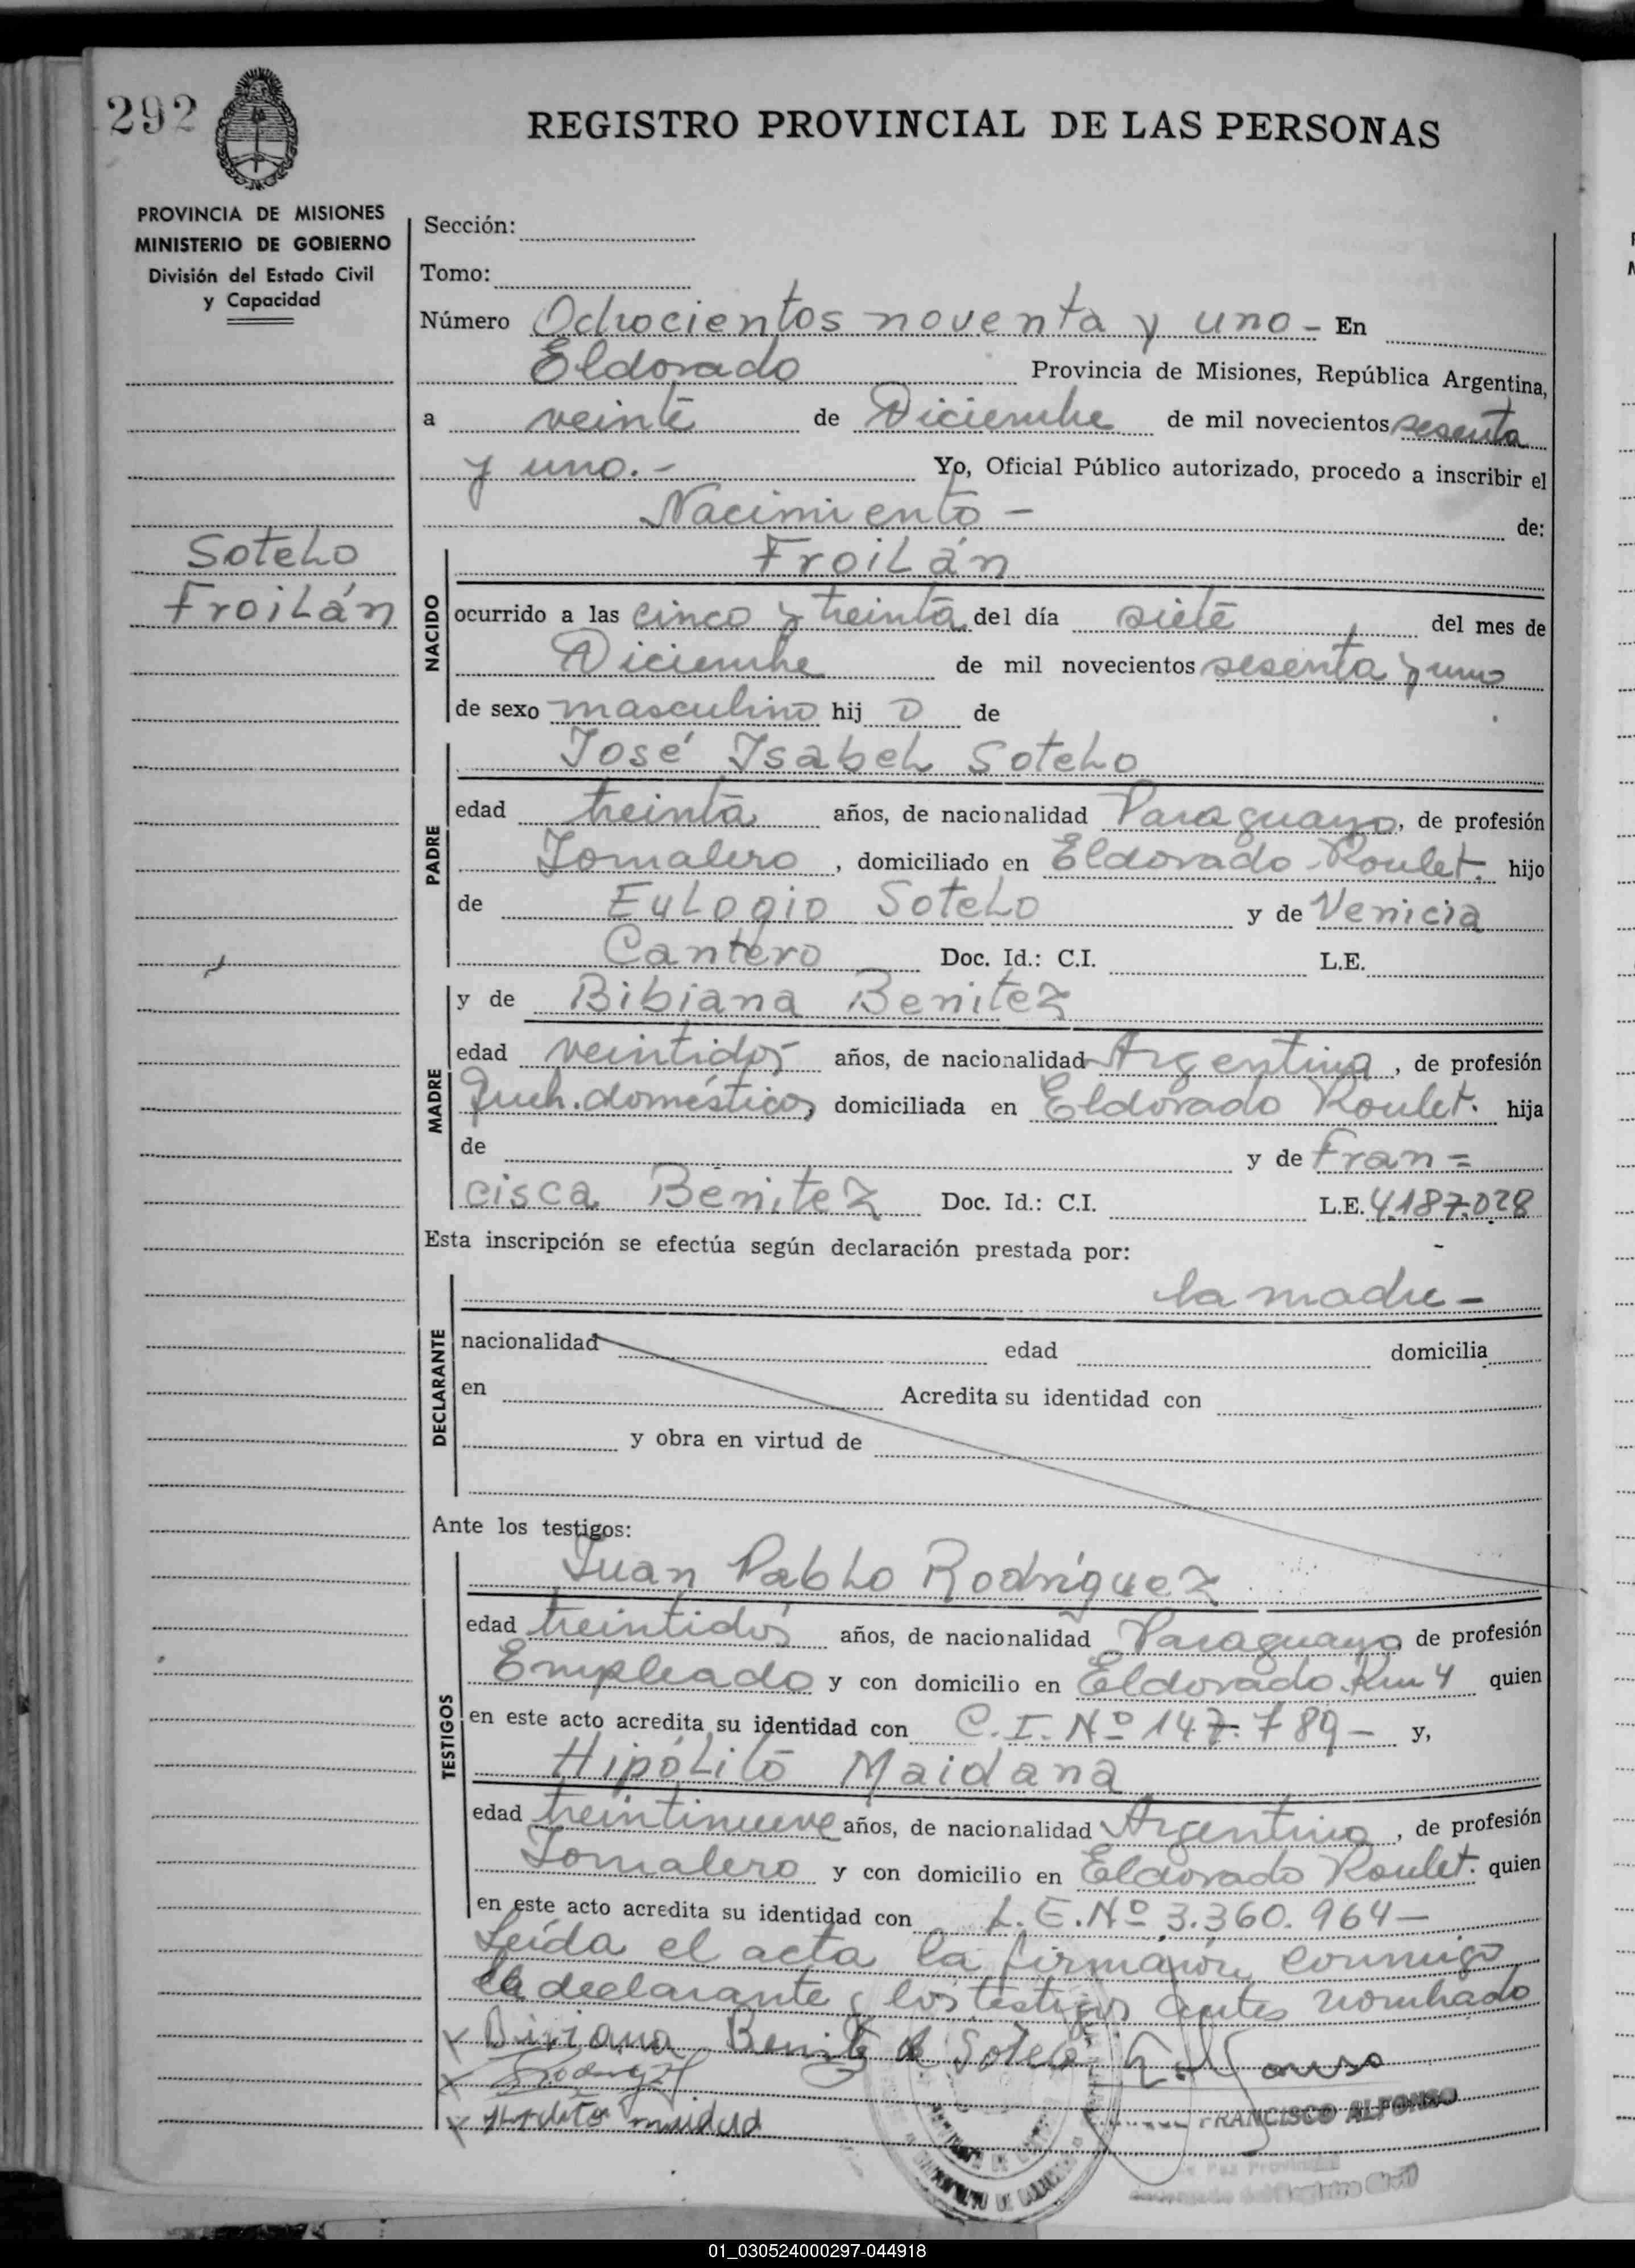 292
REGISTRO PROVINCIAL DE LAS PERSONAS
PROVINCIA DE MISIONES
MINISTERIO DE GOBIERNO
División del Estado Civil
y Capacidad
Sección:
Tomo:
Número Ochocientos noventa y uno - En
Eldorado Provincia de Misiones, República Argentina,
a veinte de Diciembre de mil novecientos sesenta
y uno.- Yo, Oficial Público autorizado, procedo a inscribir el
Nacimiento - de:
Sotelo
Froilán
NACIDO
Froilán
ocurrido a las cinco y treinta del día siete del mes de
Diciembre de mil novecientos sesenta y uno
de sexo masculino hij o de
PADRE
José Isabel Sotelo
edad treinta años, de nacionalidad Paraguayo, de profesión
Jornalero, domiciliado en Eldorado-Roulet. hijo
de Eulogio Sotelo y de Venicia
Cantero Doc. Id.: C.I. L.E.
MADRE
y de Bibiana Benitez
edad veintidós años, de nacionalidad Argentina, de profesión
Queh. domésticos, domiciliada en Eldorado Roulet. hija
de y de Fran=
cisca Benitez Doc. Id.: C.I. L.E. 4.187.028
Esta inscripción se efectúa según declaración prestada por:
DECLARANTE
la madre -
nacionalidad edad domicilia
en Acredita su identidad con
y obra en virtud de
Ante los testigos:
TESTIGOS
Juan Pablo Rodríguez
edad treintidós años, de nacionalidad Paraguayo de profesión
Empleado y con domicilio en Eldorado Km 4 quien
en este acto acredita su identidad con C.I. Nº 147.789- y,
Hipólito Maidana
edad treintinueve años, de nacionalidad Argentino, de profesión
Jornalero y con domicilio en Eldorado Roulet. quien
en este acto acredita su identidad con L.E. Nº 3.360.964-
Leída el acta la firmaron conmigo
la declarante y los testigos antes nombrado
x Biviana Benitez de Sotelo
x Rodriguez
x
FRANCISCO ALFONSO
de Paz Provincial
Encargado del Registro Civil
01_030524000297-044918